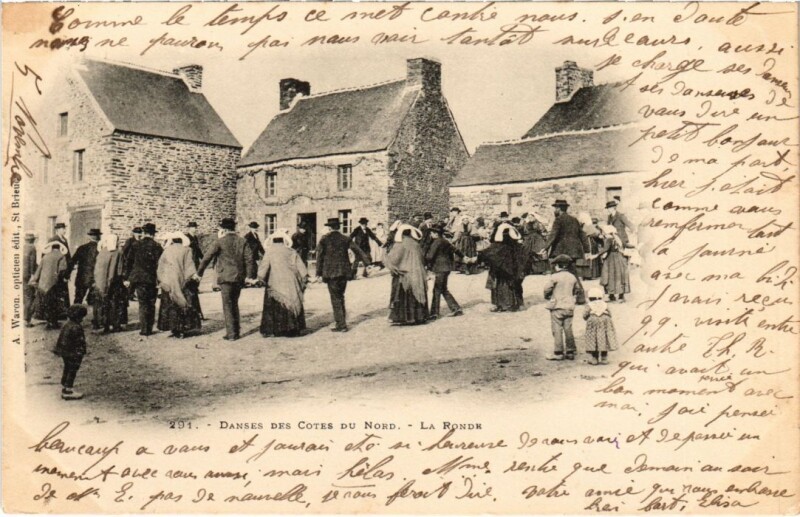 Comme le temps ce met contre nous. s'en doute
nous ne pourons pas nous voir tantôt
ailleurs, aussi
je charge ses danseurs
et ses danseuses de
vous dire un
petit bonjour
de ma part,
hier j'étais
comme vous
renfermer tout
la journé
avec ma
j'avais reçu
qq. visite entre
autre Th. R.
qui avait un
bon moment avec
moi, j'ai pensée
beaucoup a vous et j'aurais été si heureuse de vous voir et de passée un
moment avec vous aussi, mais hélas. Mme. rentre que demain au soir
de Mr E. pas de nouvelle, je vous ferat dire. votre amie que vous embrasse
bien fort, Elisa
5 Novembre
A. Waron, opticien édit., St Brieuc
291. - DANSES DES COTES DU NORD. - LA RONDE